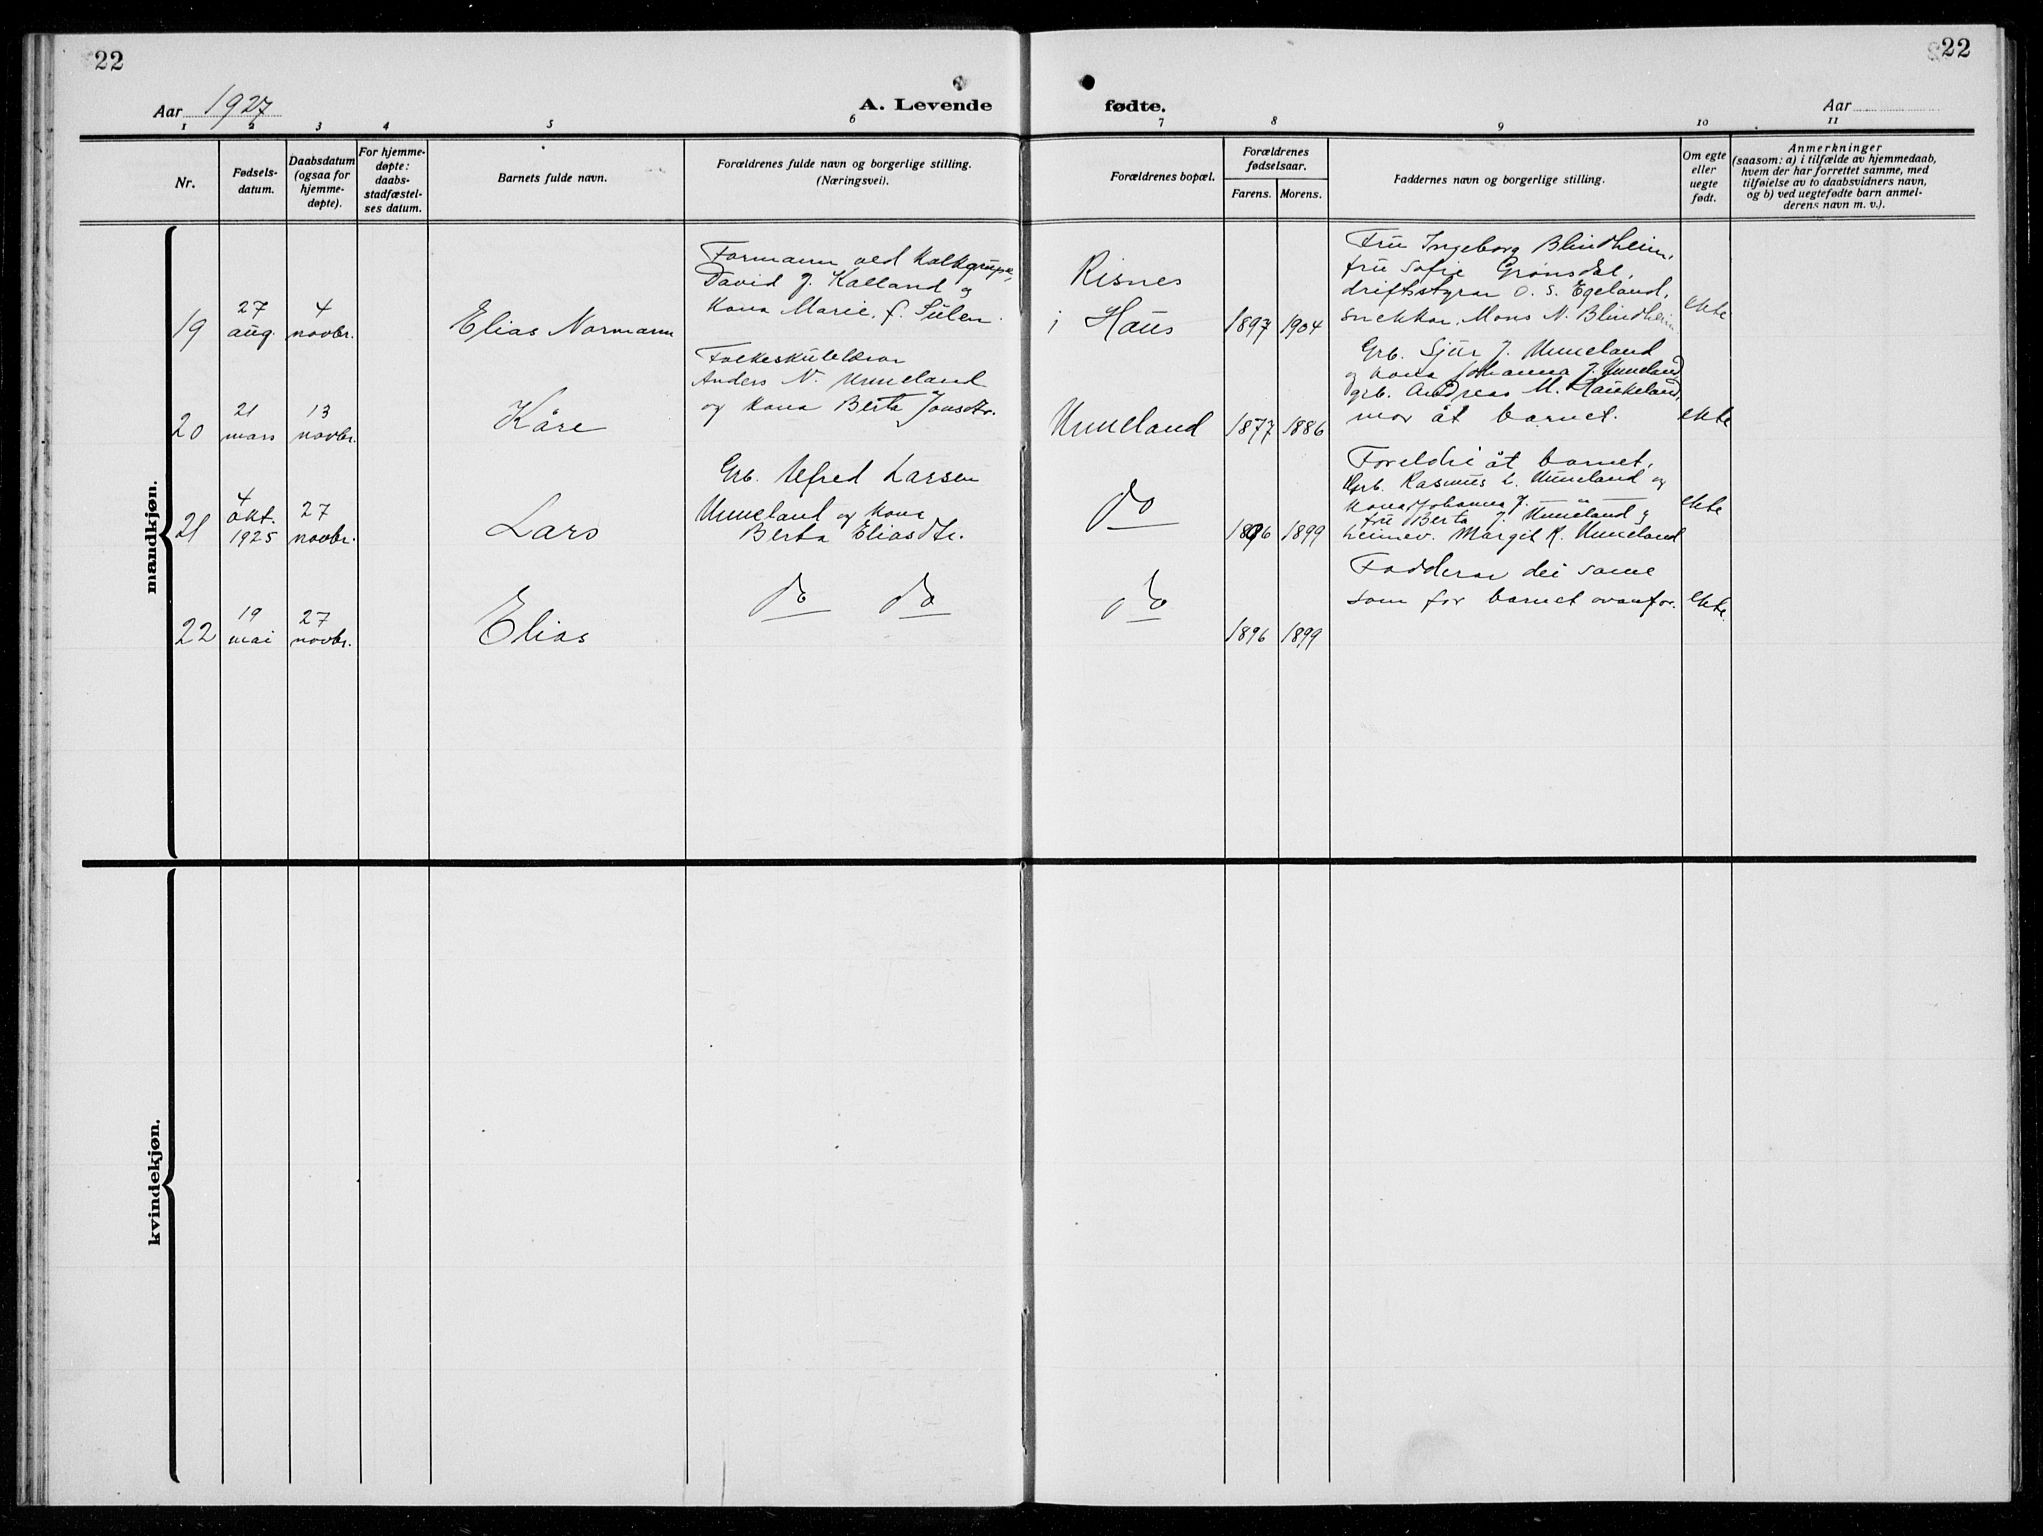 22
22
Aar 1927
A. Levende
fødte.
Aar
1 2 3 4 5 6 7 8 9 10 11
Nr.
Fødsels-
datum.
Daabsdatum
(ogsaa for
hjemme-
døpte).
For hjemme-
døpte:
daabs-
stadfæstel-
ses datum.
Barnets fulde navn.
Forældrenes fulde navn og borgerlige stilling.
(Næringsvei).
Forældrenes bopæl.
Forældrenes
fødselsaar.
Farens. Morens.
Faddernes navn og borgerlige stilling.
Om egte
eller
uegte
født.
Anmerkninger
(saasom: a) i tilfælde av hjemmedaab,
hvem der har forrettet samme, med
tilføielse av to daabsvidners navn,
og b) ved uegtefødte barn anmel-
derens navn m. v.).
mandkjøn.
19
27
aug.
4
novbr.
Elias Normann
Formann ved Kalkgrupe,
David J. Kalland og
Kona Marie, f. Sulen.
Risnes
i Haus
1897 1904
Fru Ingeborg Blindheim,
fru Sofie Grønsdal,
driftsstyrar O. S. Egeland,
snekkar Mons N. Blindheim
ekte
20
21
mars
13
novbr.
Kåre
Folkeskulelærar
Anders N. Unneland
og Kona Berta Jonsdtr.
Unneland
1877 1886
Grb. Sjur J. Unneland
og Kona Johanna J. Unneland
grb. Andreas M. Haukeland,
mor åt barnet.
ekte
21
4
okt.
1925
27
novbr.
Lars
Grb. Alfred Larsen
Unneland og Kona
Berta Eliasdtr.
do
1896 1899
Foreldri åt barnet,
Grb. Rasmus L. Unneland og
Kona Johanna J.
fru Berta J. Unneland og
heimev. Margit R. Unneland
ekte
22
19
mai
27
novbr.
Elias
do do
do
1896 1899
Fadderar dei same
som for barnet ovanfor.
ekte.
kvindekjøn.